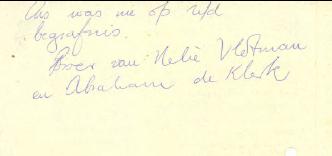 was nie op sy
begrafnis.
Broer van Nelie Vlotman
en Abraham de Klerk